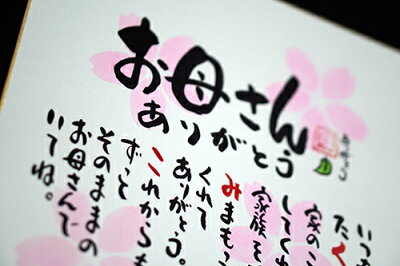 お母さん
ありがとう
いつも
たく
家のこ
してくれ
家族を
みまもっ
くれて
ありがとう。
これからも
ずっと
そのままの
お母さんで
いてね。